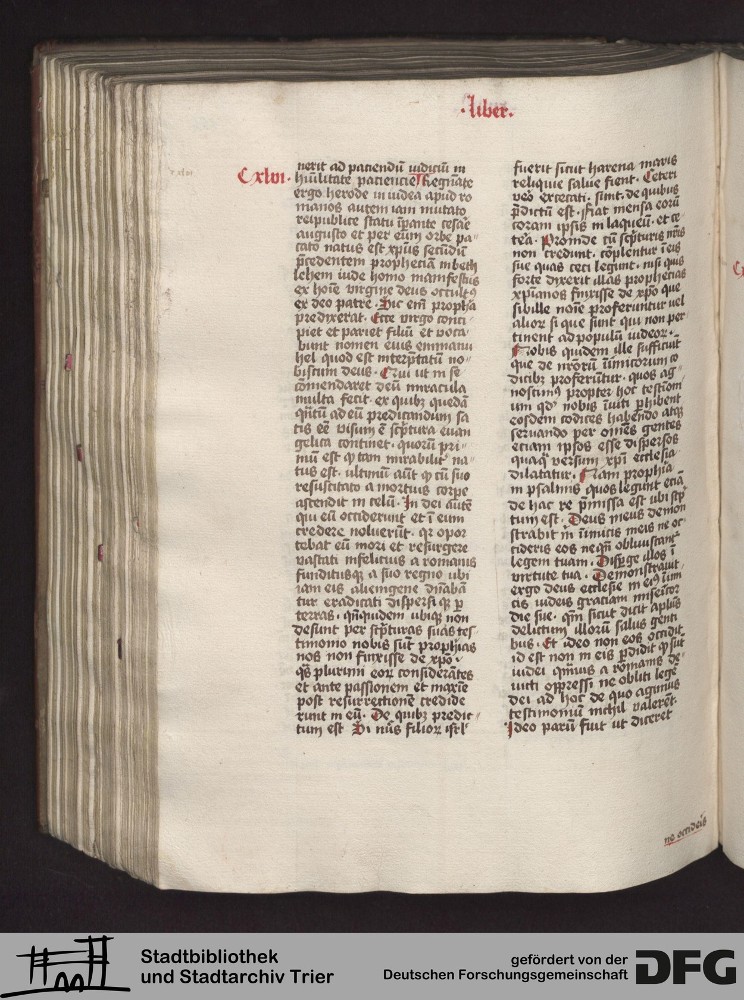 ·liber·
Cxlvi·
nerit ad paciendū iudiciū in
hūilitate paciencie Regnāte
ergo herode in iudea apud ro
manos autem iam mutato
reipublice statu īpante cesāe
augusto et per eūm orbe pa
cato natus est xp̄us secūdū
p̄cedentem propheciā in beth
lehem iude homo manifestus
ex hoīe virgine deus occultꝰ
ex deo patre · Sic em̄ propħa
predixerat · Ecce virgo conci
piet et pariet filiū et voca
bunt nomen eius emmanu
hel quod est interp̄tatū no
biscum deus · Qui ut in se
cōmendaret deū miracula
multa fecit · ex quibꝫ quedā
qn̄tū ad eū predicandum sa
tis eē visum ē scptura euan
gelica continet · quorū pri
mū est ꝙ tam mirabilit͛ na
tus est · ultimū aūt ꝙ cū suo
resuscitato a mortuis corpe
ascendit in celū · In dei autē
qui eū occiderunt et ī eum
credere noluerūt · qr opor
tebat eū mori et resurgere
vastati infelicius a romanis
funditusqꝫ a suo regno ubi
iam eis alienigene dn̄abā
tur eradicati dispersi qꝫ ꝑ
terras · qn̄quidem ubiqꝫ non
desunt per scpturas suas tes
timonio nobis sūt prophīas
nos non finxisse de xp̄o ·
qs̄ plurimi eoꝝ considerātes
et ante passionem et maxīe
post resurrectionē credide
runt in eū · De quibꝫ predic
tum est Si nūs filioꝝ isrl̄
fuerit sicut harena maris
reliquie salue fient · Ceteri
vero excecati · sunt · de quibus
p̄dictū est · Fiat mensa eorū
coram ipsis in laqueū · et ce
tēa · Proinde cū scpturis nr̄is
non credunt · cōplentur ī eis
sue quas ceci legunt · nisi quis
forte dixerit illas prophecias
xpīanos finxisse de xp̄o que
sibille noīe proferuntur uel
alioꝝ si que sunt qui non per
tinent ad populū iudeoꝝ ·
Nobis quidem ille sufficiūt
que de nr̄orū inimicorum co
dicibꝫ proferūtur · quos ag
noscimꝰ propter hoc testiōm
ium qd̛ nobis īuiti ꝑhibent
eosdem codices habendo atqꝫ
seruando per omēs gentes
etiam ipsos esse dispersos
quaqꝫ versum xp̄i ecclesia
dilatatur · Nam prophīa
in psalmis quos legunt eciā
de hac re p̄missa est ubi scp
tum est · Deus meus demon
strabit m̄ inimicis meis ne oc
cideris eos neqn̄ obliuiscant͛
legem tuam · Dispge illos ī
virtute tua · Demonstrauit
ergo deus ecclesie in eiꝰ īim
cis iudeis graciam misericor
die sue · qm̄ sicut dicit apl̄us
delictum illorū salus genti
bus · Et ideo non eos occidit
id est non in eis ꝑdidit ꝙ sūt
iudei qm̄uis a romanis de
uicti oppressi ne obliti lege
dei ad hoc de quo agimus
testimoniū nichil valerēt
Ideo parū fuit ut diceret
ne occideris
Stadtbibliothek
und Stadtarchiv Trier
gefördert von der
Deutschen Forschungsgemeinschaft
DFG